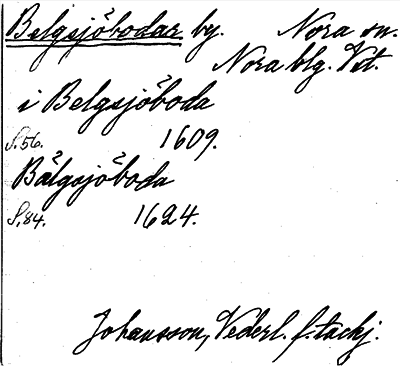 Belgsjöbodar by. Nora sn.
Nora blg. Vst.
i Belgsjöboda
S.56. 1609.
Bälgsjöboda
S.84. 1624.
Johansson, Vederl. f. tackj.